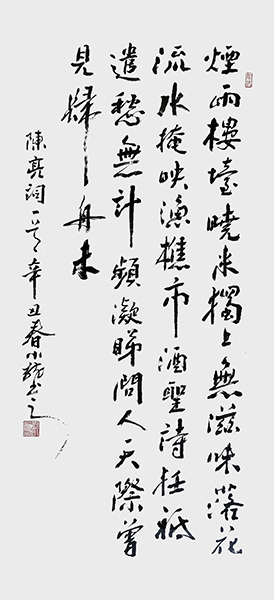 煙雨樓臺曉来獨上無滋味落花
流水掩映漁樵市酒聖詩狂祇
遣愁無計頻凝睇問人天際曾
見歸舟未
陳亮詞一首辛丑春小書之